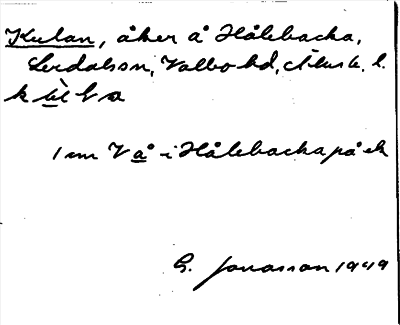 Kulan, åker å Hålebacka,
Lerdalssn, Valbo hd, Älvsb. l.
1 sm V å i Hålebacka på ek
G. Jonasson 1949